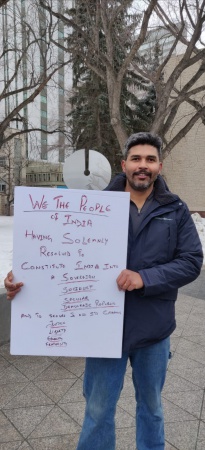 WE THE PEOPLE
of INDIA
HAVING SOLEMNLY
RESOLVED To
CONSTITUTE INDIA INTO
A SOVEREIGN
SOCIALIST
SECULAR
DEMOCRATIC REPUBLIC
AND TO SECURE TO ALL ITS CITIZENS
JUSTICE
LIBERTY
EQUALITY
FRATERNITY